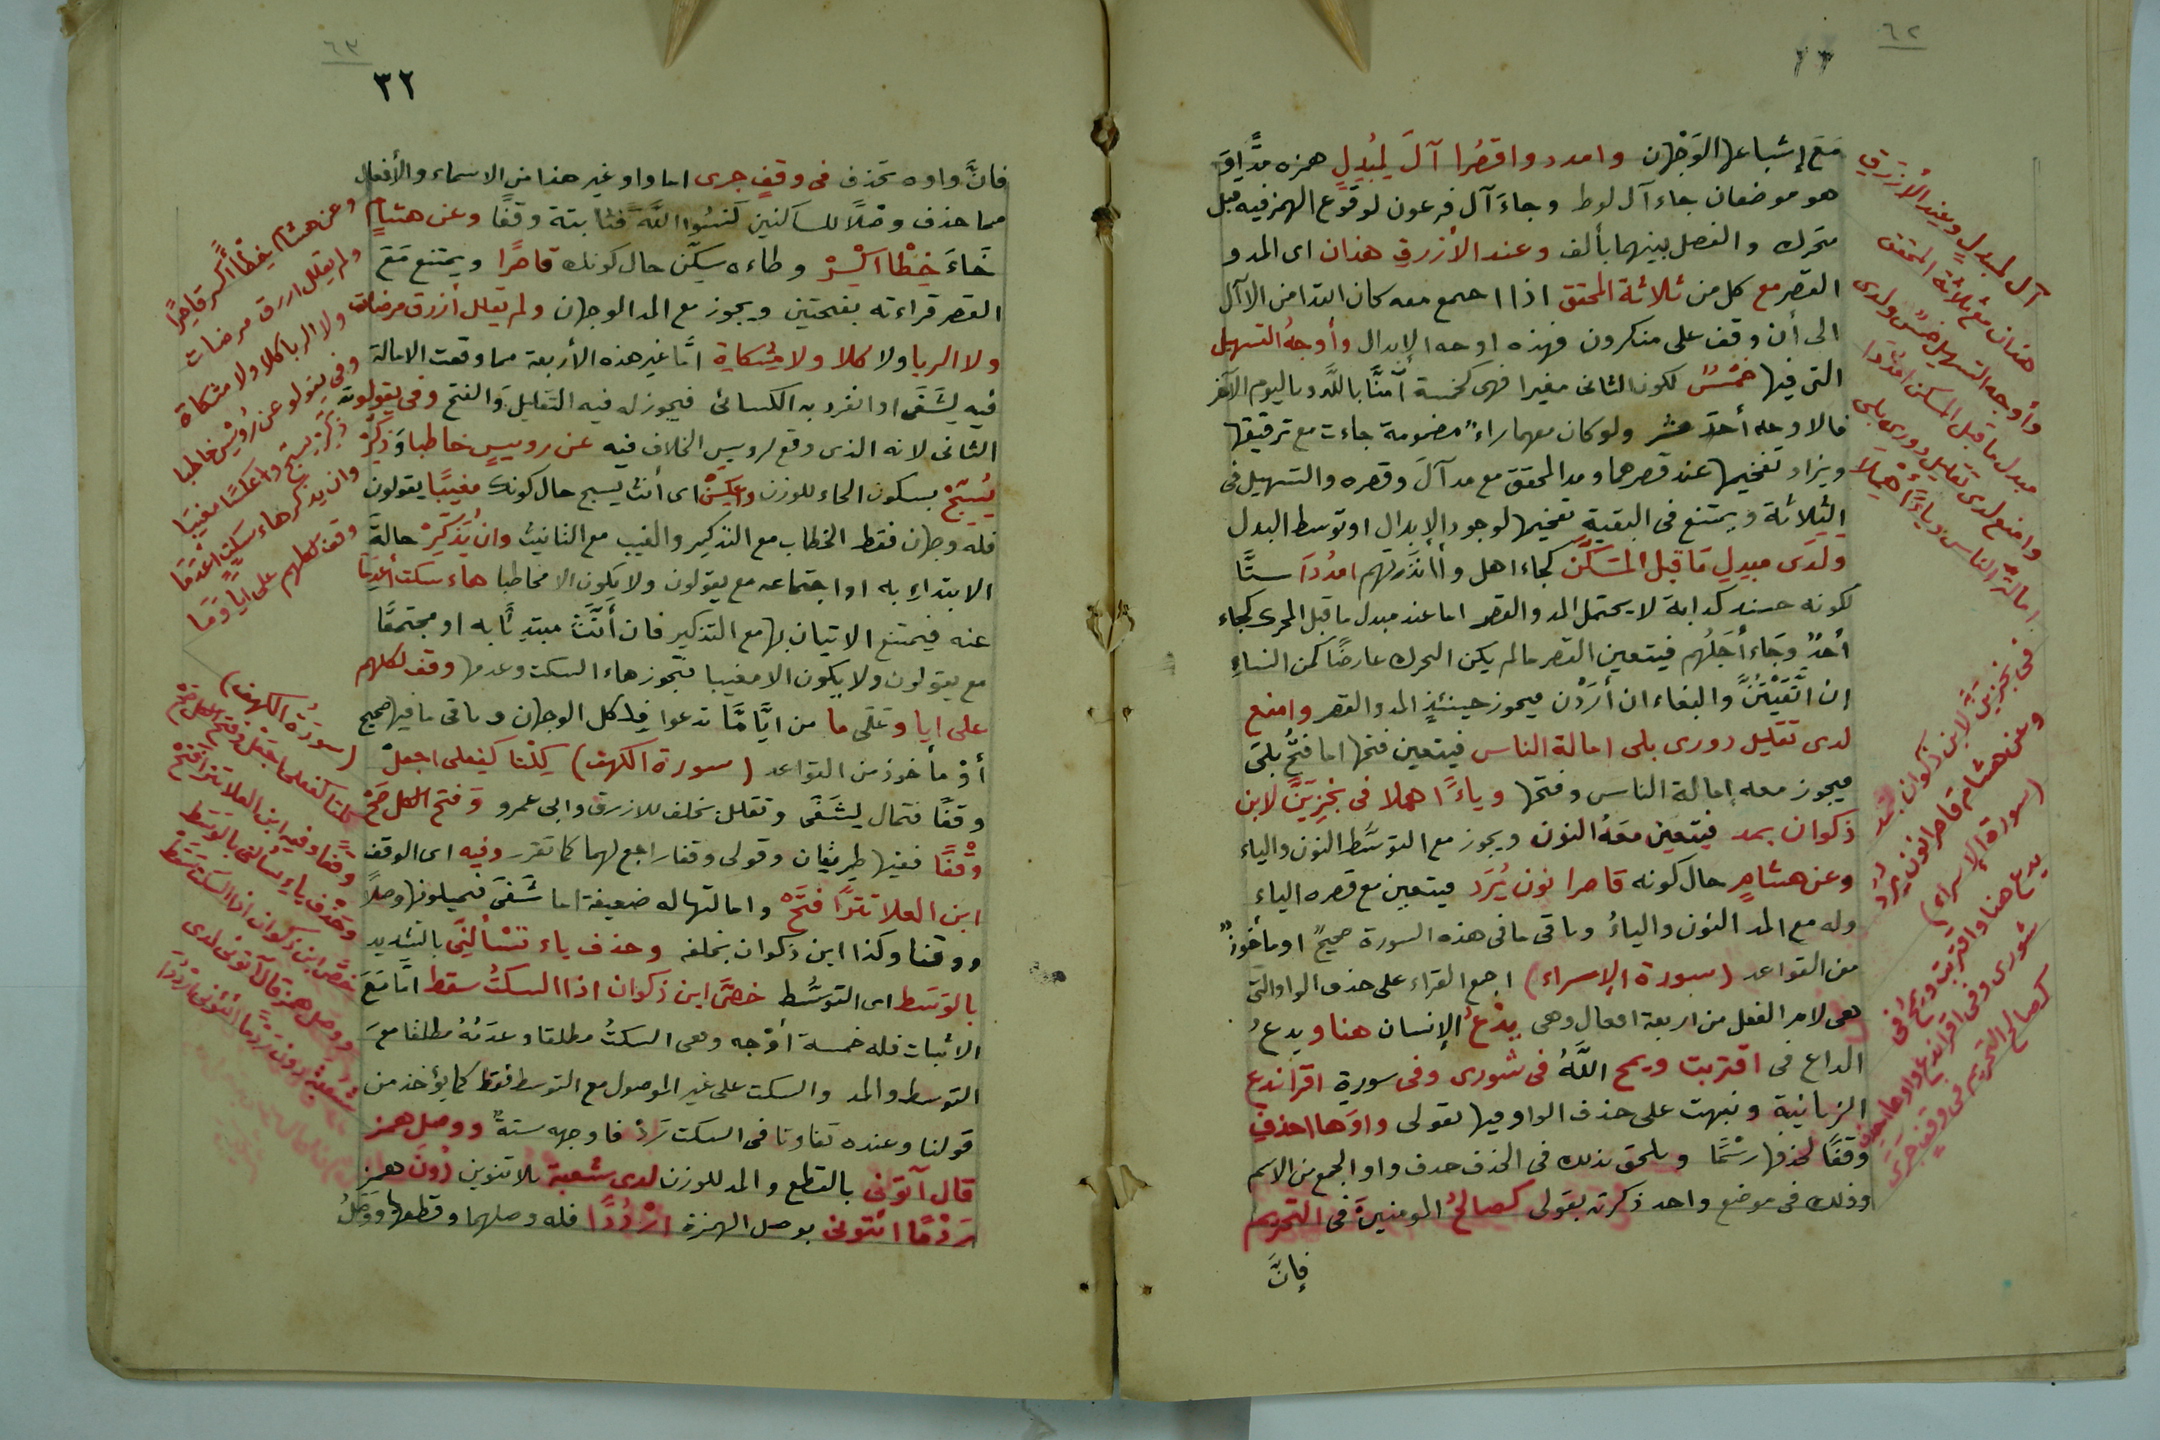 ٦٢
مَعَ إشباعها الوَجْهان وامدد واقصُرا آلَ لمُبْدِلٍ همزه مدًّا وَ
هو موضعان جاء آل لوط وجاءَ آل فرعون لوقوع الهمز فيه قبل
متحرك والفصل بينهما بألف وعند الأزرق هذان اى المد و
القصر مع كل من ثلاثة المحقق اذا اجمع معه كان ابتدا من الا آل
الى أن وقف على منكرون فهذه اوجه الإبدال وأوجهُ التسهيل
التى فيها خمْسٌ لكون الثانى مغيرا فهى كخمسة آمَنَّا بالله وباليوم الآخر
فالاوجه أحدَ عشر ولو كان معهما راءٌ مضمومة جاءت مع ترقيقها
ويزاد تفخيمها عند قصرهما ومد المحقق مع مد آلَ وقصره والتسهيل فى
الثلاثة ويمتنع فى البقية تفخيمها لوجود الإبدال او توسط البدل
ولَدَى مبدِلِ مَا قبل المسَكَّن كجاء اهل وأأنذرتهم امدُدَا ستًّا
لكونه حينئذ كدابة لا يحتمل المد والقصر اما عند مبدل ما قبل المحرك كجاء
أحدٌ وَجَاء أجَلُهم فيتعين القصر مالم يكن التحرك عارضًا كمن النساءِ
ان اتَّقَيْتُنَّ والبغاء ان أرَدْن فيجوز حينئذٍ المد والقصر وامنع
لدى تقليل دورى بلى امالة الناس فيتعين فتحها اما فتحُ بلَى
فيجوز معه إمالة الناس وفتحها وياءً اهملا فى نجْزِيَنَّ لابن
ذكوان بمد فيتعين معَهُ النون ويجوز مع التوسُّط النون والياء
وعن هشامٍ حال كونه قاصرا نون يُرَد فيتعين مع قصره الياء
وله مع المد النون والياءُ وباقى ما فى هذه السورة صحيحٌ او مأخوذٌ
من القواعد (سورة الإسراء) اجمع القراء على حذف الواو التى
هى لام الفعل من اربعة افعال وهى يدْعُ الإنسان هنا ويدعُ
الداع فى اقتربت ويمح اللَّهُ فى شورى وفى سورةِ اقرا ندع
الزبانية ونبهت على حذف الواو فيها بقولى واوَها احذفِ
وقفًا لحذفها رسْمًا ويلحق بذلك فى الحذف حذف واو الجمع من الاسم
وذلك فى موضع واحد ذكرته بقَولى كصالحُ المومنينَ فى التحريم
فإنَّ
آل لمبدلٍ وعِند الأزرَقِ
هذان مع ثلاثة المحقق
وأوجه التسهيل خمْسٌ ولدى
مبدل ما قبل المسكن امدُدَا
وامنع لدى تقليل دورى بلى
امالة الناس وياءً أهْمِلَا
فى نجزِيَنَّ لابن ذكوان بمد
وعن هشام قاصرا نون يرد
(سورة الإسراء)
يدع هنا واقتربت ويمحُ فى
شورى وفى اقرا ندع واوها احذف
كصالح التحريم فى وقفٍ جَرَى
٦٣
٣٢
فانَّ واوه تحذف فى وقفٍ جرى اما واو غير هذا من الاسماء والأفعال
مما حذف وصْلًا للساكنين كنسُوا اللَّهَ فثابتة وقفًا وعن هشامٍ
خَاءَ خِطْأ اكسِرْ وطاءه سكّن حال كونك قاصرًا ويمتنع مَعَ
القصر قراءته بفتحتين ويجوز مع المد الوجهان ولم يقلل أزرق مرضات
ولا الربا ولا كلا ولا مشكاةِ امَّا غير هذه الأربعة مما وقعت الامالة
فيه ليَشَفَى او انفرد به الكسائى فيجوز له فيه التقليل والفتح وفى يقولون
الثانى لانه الذى وقع لرويس الخلاف فيه عن رويسٍ خاطبا وَذكِّرْ
يُسبّحْ بسكون الحاء للوزن واعكسَنْ اى أنث يسبح حال كونك مغيبًا يقولون
فله وجهان فقط الخطاب مع التذكير والغيب مع التانيث وان يُذَكِّرْ حالةَ
الابتداءِ به او اجتماعه مع يقولون ولا يكون الا مخاطبا هاءَ سكت أعدِمَا
عنه فيمتنع الاتيان بها مع التذكير فان أنَّثَ مبتدئًا به او مجتمعًا
مع يقولون ولا يكون الا مغيبا فتجوز هاء السكت وعدمها وقف لكلهم
على ايا وعَلَى ما من ايَّامَّا تدعوا فلِكل الوجهان وباقى ما فيها صحيح
أوْ مأخوذ من القواعد (سورة الكهف) كِلتا كفعلى اجعلْ
وقفًا فتمال ليشَفَى وتقلل بخلف للازرق وابى عمرو وَفتح الكل صَحْ
وقْفًا ففيها طريقان وقولى وقفا راجع لهما كما تقرر وفيه اى الوقف
ابن العلا تترًا فتَحْ وامالتها له ضعيفة اما شَفَى فيميلونها وصلًا
ووقفا وكذا ابن ذكوان بخلفه وحذف ياء تسْألنِّى بالتشديد
بالوَسَط اى التوسُّط خصَّ ابن ذكوان اذا السكتُ سقط امَّا مَعَ
الاثبات فله خمسة أوْجه وهى السكتُ مطلقا وعدمُهُ مطلقا معَ
التوسط والمد والسكت على غير الموصول مع التوسط فقط كما يؤخذ من
قولنا وعنده تفاوتا فى السكت رَدْ فاوجهه ستةٌ ووصل همز
قال آتونى بالقطع والمد للوزن لدى شعبة بلا تنوين دُونَ همز
رَدْمًا ائتونى بوصل الهمزة ارْدُدًا فله وصلهما وقطعهما وَوَصْلُ
وعن هشام خِطْأً أكسر قاصِرًا
ولم يقلل ازرق مرضات
ولا الربا كلا ولا مشكاة
وفى يقولو عن رُوَيْسٍ خاطبا
ذكِّر يسبح واعكسًا مغيبَا
وان يذكر هاء سكتٍ اعدمَا
وقف لكلهم على ايا وَمَا
(سورَةُ الكهف)
كلتا كفعلى اجعَلْ وفتح الكل صَحْ
وقفًا وفيه ابن العلا تترًا فتحْ
وحَذْف ياءِ تسألنى بالوَسَط
خصَّ ابن ذكوان اذا السكت سَقَط
ووصل همز قال آتونى لدى
شعبة دونَ رَدْمًا ائتونى ارْدُدَا